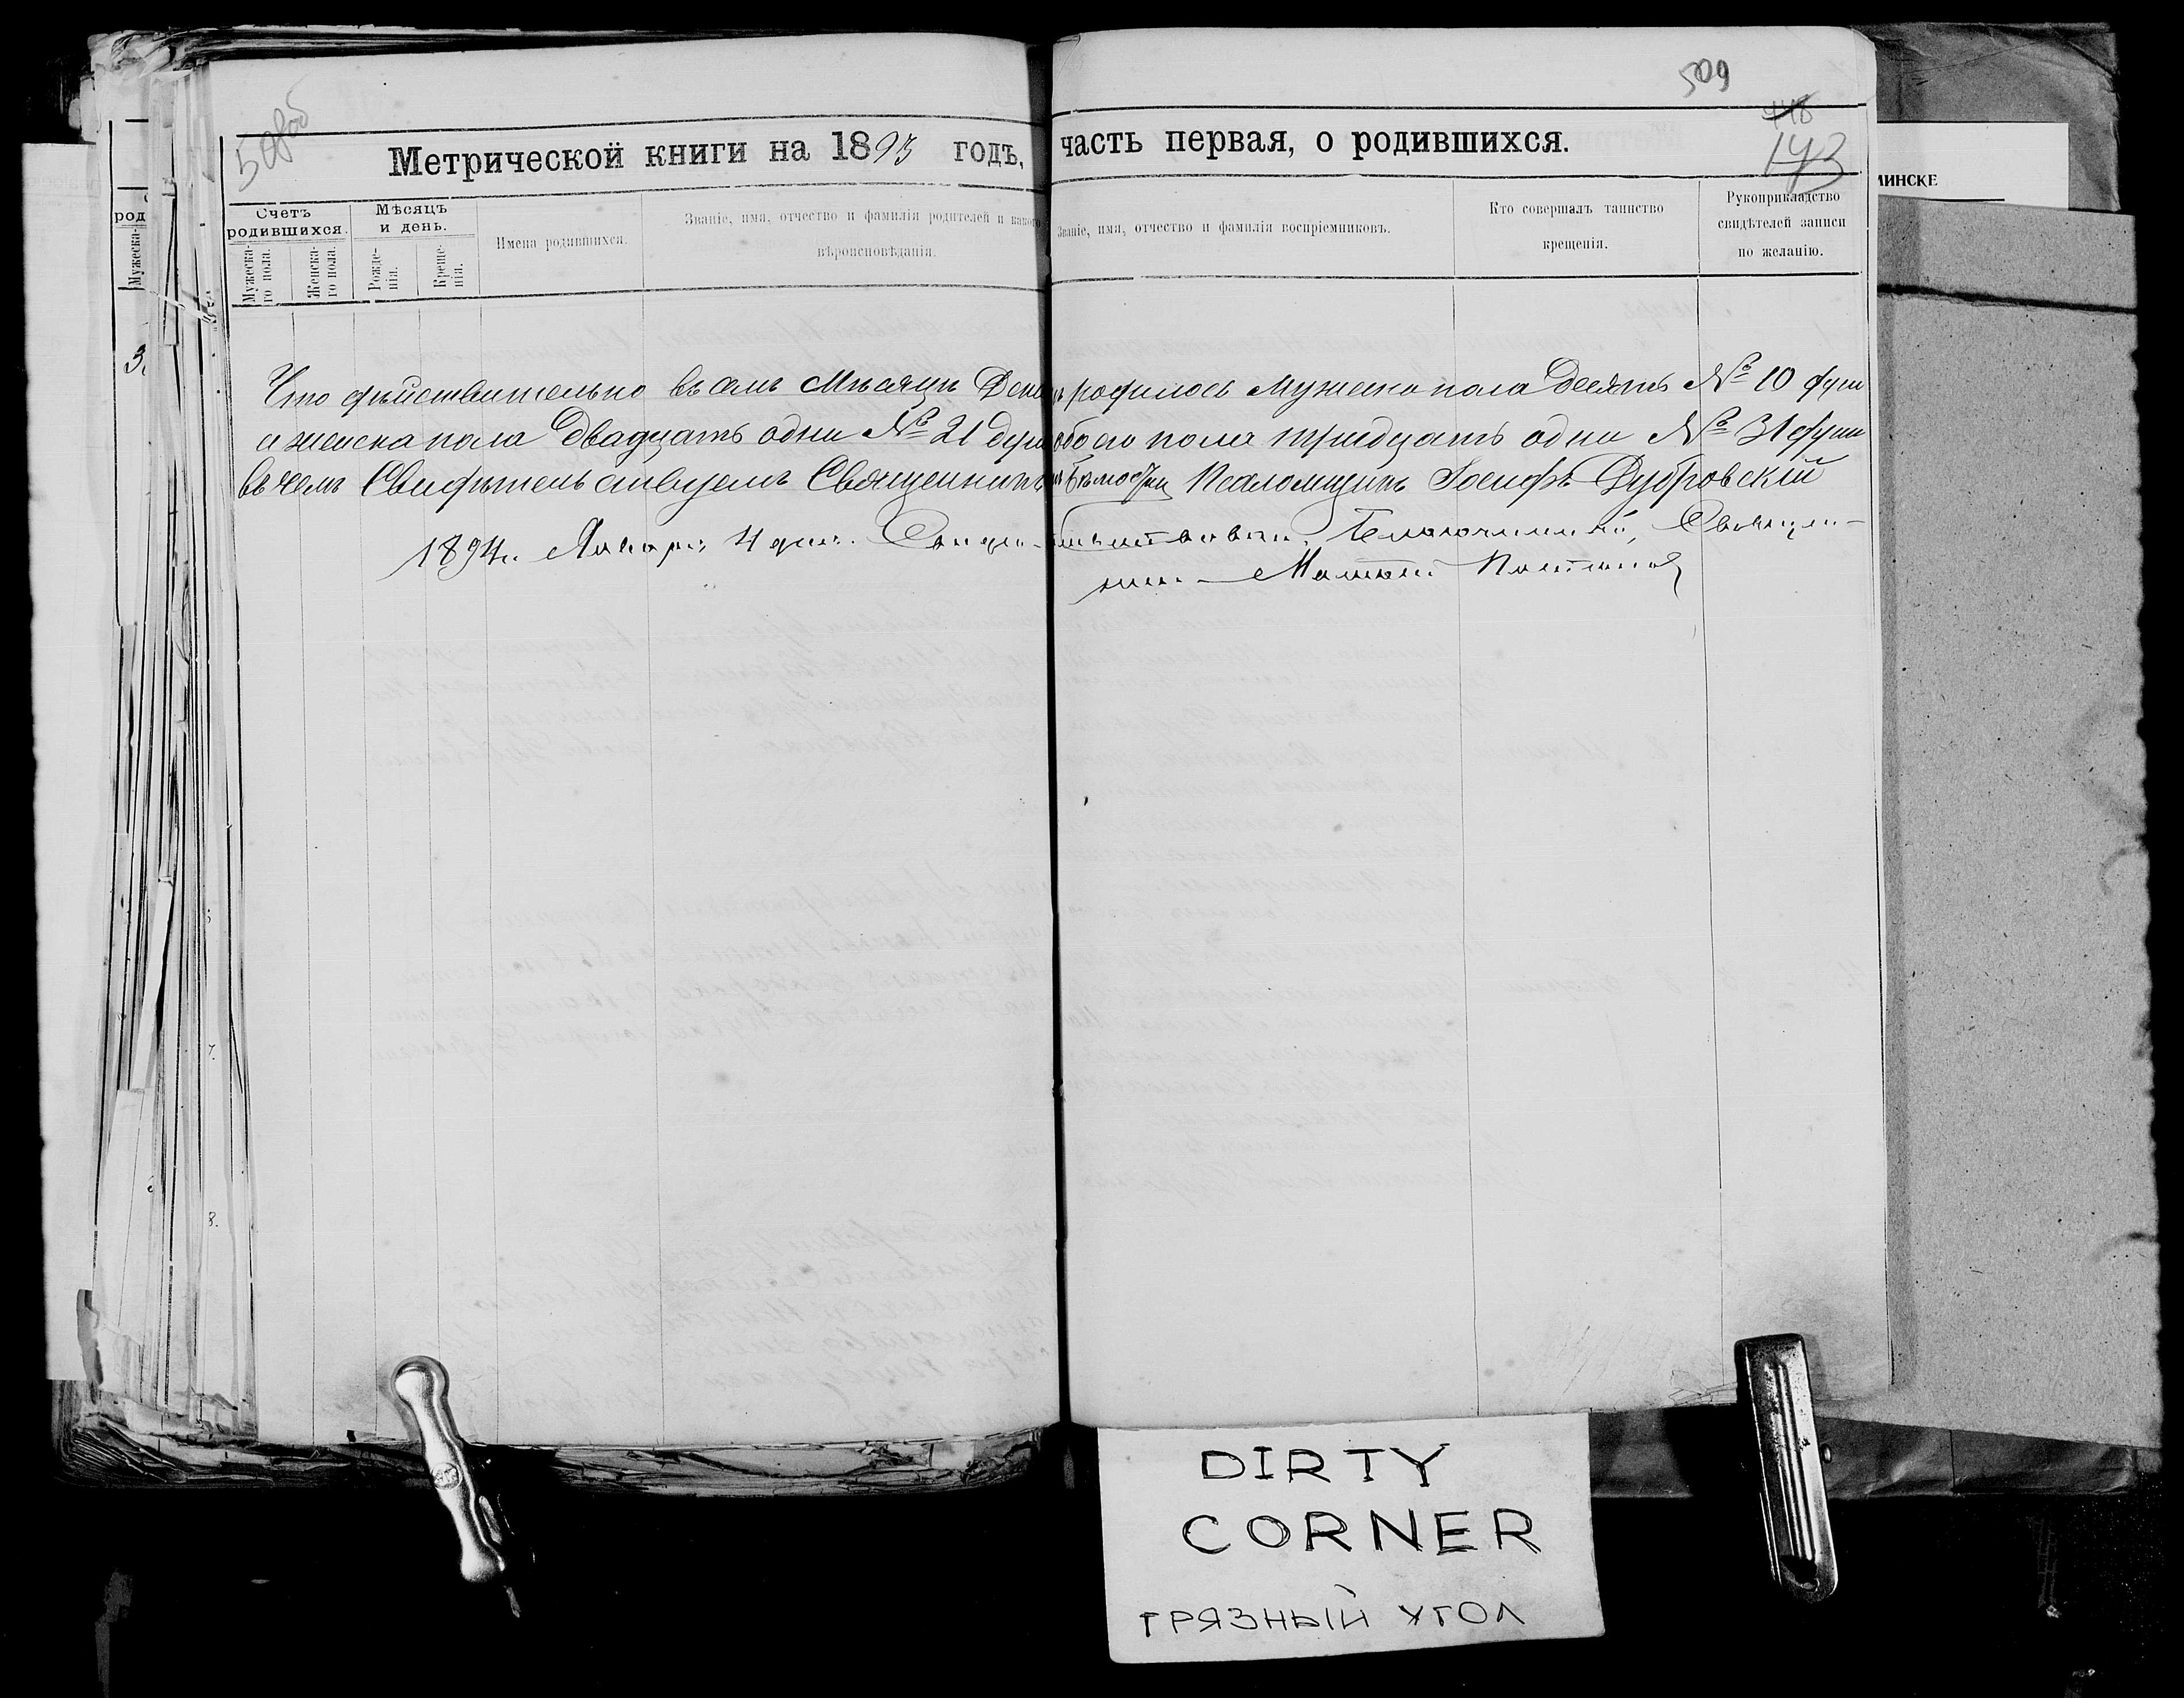 509
508об
448
143
Метрической книги на 1893 годъ, часть первая, о родившихся.
МИНСКЕ
род
Мужеска-
Счетъ родившихся.
Мужеска-го пола.
Женска-го пола.
Мѣсяцъ и день.
Рожде-нія.
Креще-нія.
Имена родившихся.
Званіе, имя, отчество и фамилія родителей и какого
вѣроисповѣданія.
Званіе, имя, отчество и фамилія воспріемниковъ.
Кто совершалъ таинство
крещенія.
Рукоприкладство
свидѣтелей записи
по желанію.
3.
Что дѣйствительно въ семъ Мѣсяцѣ родилось Мужеска пола десять № 10 душ
и женска пола Двадцать одни № 21 душ обоего пола тридцать одни № 31 душ
въ чемъ Свидѣтельствуемъ Священникъ Псаломщикъ Іосифъ Дубровскій
1894. Января 4 дня. Благочинный, Священ-
никъ
7.
8.
DIRTY
CORNER
ГРЯЗНЫЙ УГОЛ